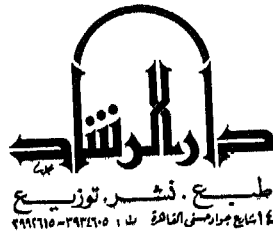 دار الرشاد
طبع . نشر . توزيع
١٤ شارع جواد حسنى القاهرة ت : ٣٩٣٤٦٠٥ - ٣٩٩٢٦١٥